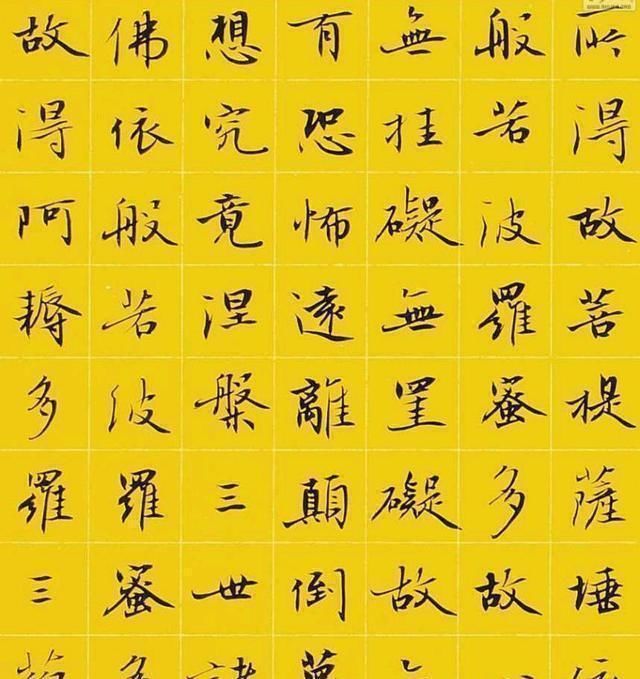 所得故菩提薩埵依
般若波羅蜜多故
無挂礙無罣礙故
有恐怖遠離顛倒夢
想究竟涅槃三世諸
佛依般若波羅蜜多
故得阿耨多羅三藐